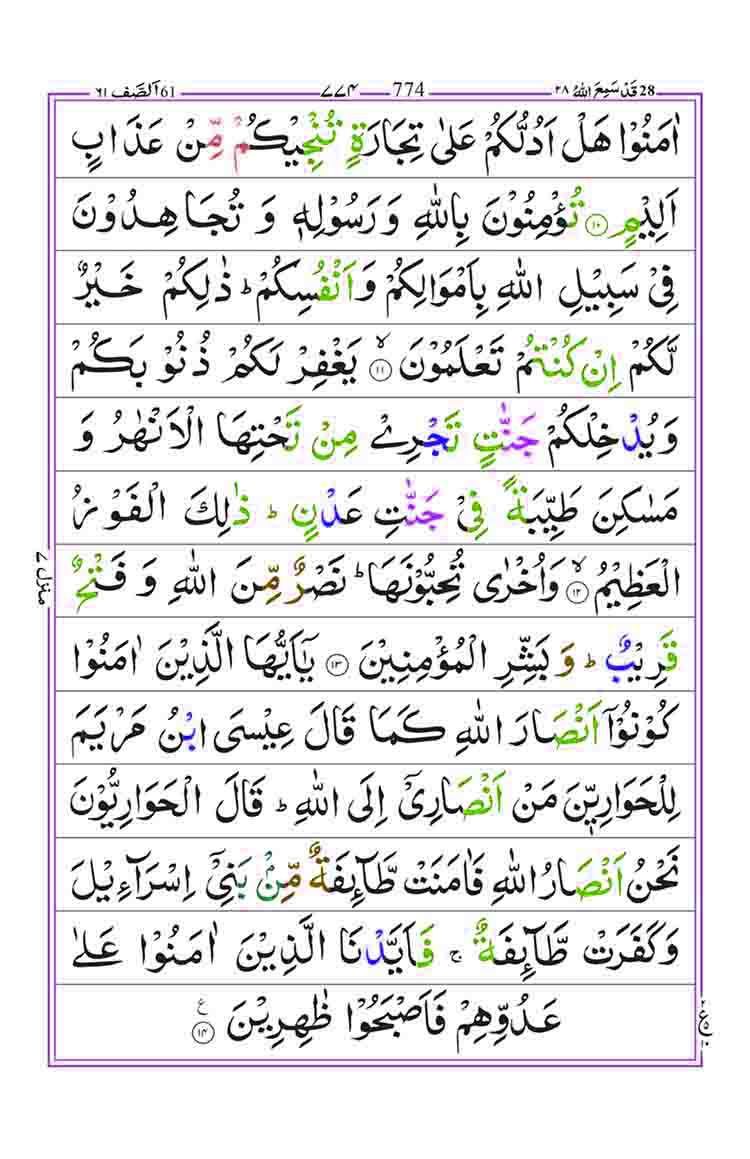 28 قَدْ سَمِعَ اللّٰهُ ٢٨ 774 ٧٧۴ 61 اَلصَّف ٦١
اٰمَنُوْا هَلْ اَدُلُّكُمْ عَلٰى تِجَارَةٍ تُنْجِيْكُمْ مِّنْ عَذَابٍ
اَلِيْمٍ ١٠ تُؤْمِنُوْنَ بِاللّٰهِ وَرَسُوْلِهٖ وَ تُجَاهِدُوْنَ
فِيْ سَبِيْلِ اللّٰهِ بِاَمْوَالِكُمْ وَاَنْفُسِكُمْ ؕ ذٰلِكُمْ خَيْرٌ
لَّكُمْ اِنْ كُنْتُمْ تَعْلَمُوْنَ ۙ ١١ يَغْفِرْ لَكُمْ ذُنُوْبَكُمْ
وَيُدْخِلْكُمْ جَنّٰتٍ تَجْرِيْ مِنْ تَحْتِهَا الْاَنْهٰرُ وَ
مَسٰكِنَ طَيِّبَةً فِيْ جَنّٰتِ عَدْنٍ ؕ ذٰلِكَ الْفَوْزُ
الْعَظِيْمُ ۙ ١٢ وَاُخْرٰى تُحِبُّوْنَهَا ؕ نَصْرٌ مِّنَ اللّٰهِ وَ فَتْحٌ
قَرِيْبٌ ؕ وَ بَشِّرِ الْمُؤْمِنِيْنَ ١٣ يٰۤاَيُّهَا الَّذِيْنَ اٰمَنُوْا
كُوْنُوْۤا اَنْصَارَ اللّٰهِ كَمَا قَالَ عِيْسَى ابْنُ مَرْيَمَ
لِلْحَوَارِيّٖنَ مَنْ اَنْصَارِيْۤ اِلَى اللّٰهِ ؕ قَالَ الْحَوَارِيُّوْنَ
نَحْنُ اَنْصَارُ اللّٰهِ فَاٰمَنَتْ طَّآئِفَةٌ مِّنْۢ بَنِيْۤ اِسْرَآءِيْلَ
وَكَفَرَتْ طَّآئِفَةٌ ۚ فَاَيَّدْنَا الَّذِيْنَ اٰمَنُوْا عَلٰى
عَدُوِّهِمْ فَاَصْبَحُوْا ظٰهِرِيْنَ ١٤ ع
منزل ٧